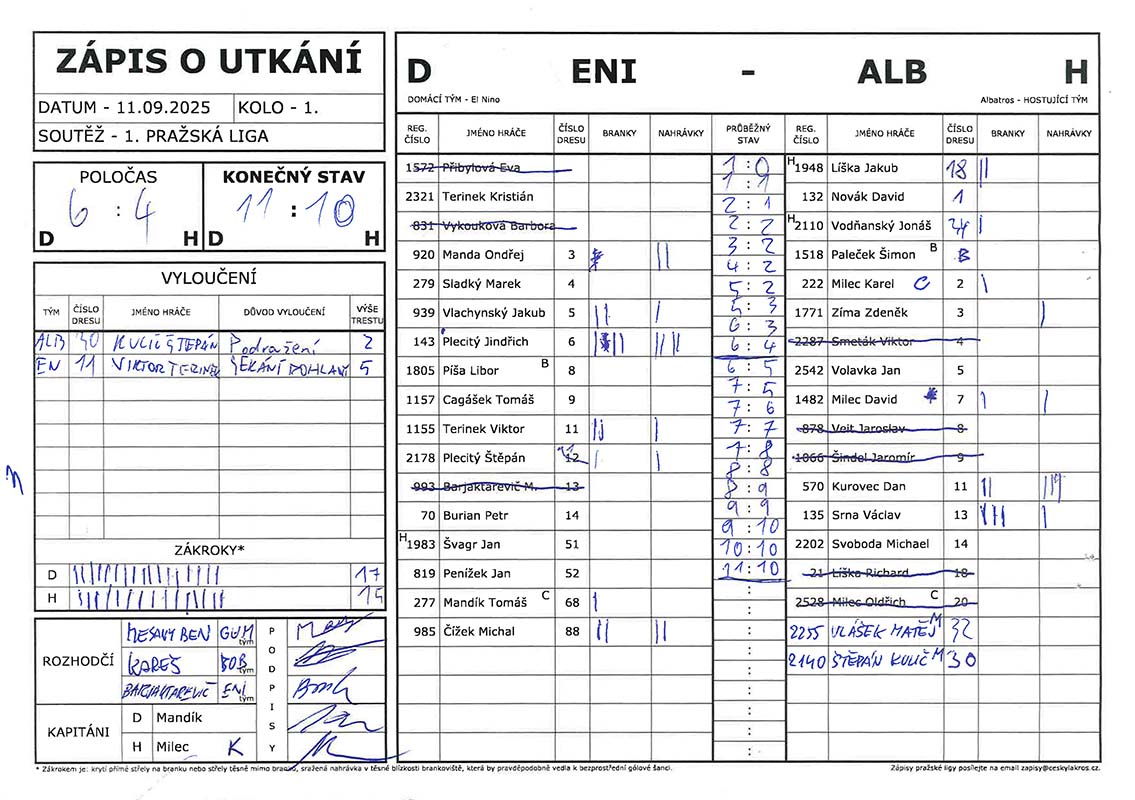 ZÁPIS O UTKÁNÍ
DATUM - 11.09.2025 KOLO - 1.
SOUTĚŽ - 1. PRAŽSKÁ LIGA
POLOČAS KONEČNÝ STAV
6 : 4 11 : 10
D H D H
VYLOUČENÍ
TÝM ČÍSLO DRESU JMÉNO HRÁČE DŮVOD VYLOUČENÍ VÝŠE TRESTU
ALB 30 KULIČ ŠTEPÁN Podražení 2
EN 11 VIKTOR TERINEK SEKÁNÍ DOHLAVY 5
ZÁKROKY*
D 17
H
ROZHODČÍ
GUM tým
KAREŠ BOB tým
BARJAKTAREVIČ ENI tým
PODPISY
KAPITÁNI
D Mandík
H Milec K
D ENI - ALB H
DOMÁCÍ TÝM - El Nino Albatros - HOSTUJÍCÍ TÝM
REG. ČÍSLO JMÉNO HRÁČE ČÍSLO DRESU BRANKY NAHRÁVKY PRŮBĚŽNÝ STAV REG. ČÍSLO JMÉNO HRÁČE ČÍSLO DRESU BRANKY NAHRÁVKY
1572 Přibylová Eva
2321 Terinek Kristián
831 Vykouková Barbora
920 Manda Ondřej 3
279 Sladký Marek 4
939 Vlachynský Jakub 5
143 Plecitý Jindřich 6
1805 Píša Libor B 8
1157 Cagášek Tomáš 9
1155 Terinek Viktor 11
2178 Plecitý Štěpán 12
993 Barjaktarevič M. 13
70 Burian Petr 14
H 1983 Švagr Jan 51
819 Penížek Jan 52
277 Mandík Tomáš C 68
985 Čížek Michal 88
1 : 0
1 : 1
2 : 1
2 : 2
3 : 2
4 : 2
5 : 2
5 : 3
6 : 3
6 : 4
6 : 5
7 : 5
7 : 6
7 : 7
7 : 8
8 : 8
8 : 9
9 : 9
9 : 10
10 : 10
11 : 10
H 1948 Líška Jakub 18
132 Novák David 1
H 2110 Vodňanský Jonáš 24
1518 Paleček Šimon B
222 Milec Karel C 2
1771 Zíma Zdeněk 3
2287 Smeták Viktor 4
2542 Volavka Jan 5
1482 Milec David 7
878 Veit Jaroslav 8
1066 Šindel Jaromír 9
570 Kurovec Dan 11
135 Srna Václav 13
2202 Svoboda Michael 14
21 Líška Richard 18
2528 Milec Oldřich C 20
2255 VLÁŠEK MATĚJ M 32
2140 ŠTĚPÁN KULIČ M 30
* Zákrokem je: krytí přímé střely na branku nebo střely těsně mimo branku, sražená nahrávka v těsné blízkosti brankoviště, která by pravděpodobně vedla k bezprostřední gólové šanci.
Zápisy pražské ligy posílejte na email zapisy@ceskylakros.cz.